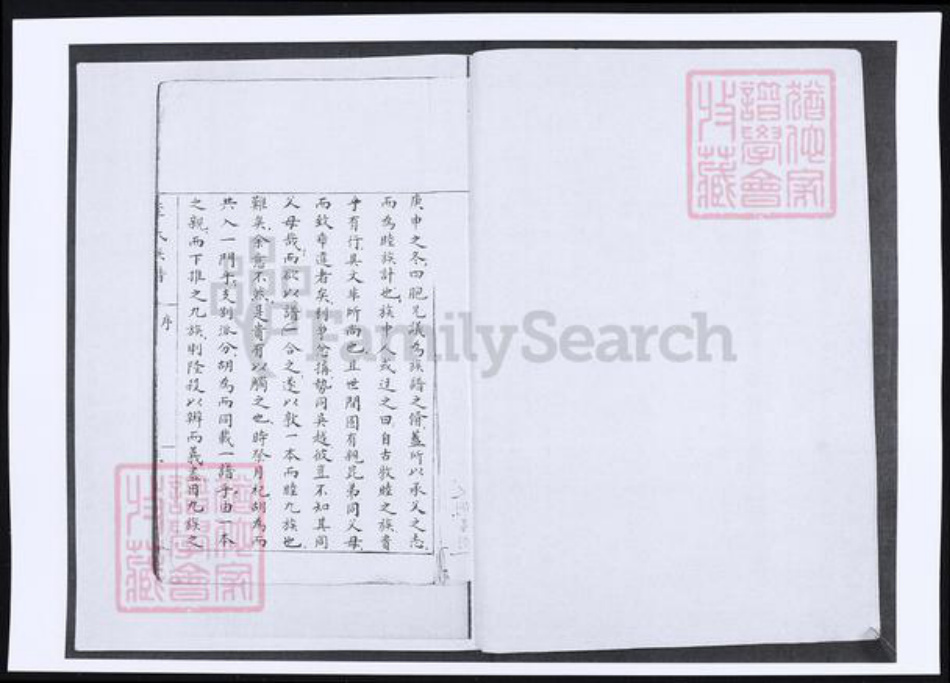 庚申之冬四胞兄議為族譜之脩蓋所以承父之志
而為睦族計也族中人或迂之曰自古敦睦之族貴
乎有行具文非所尚也且世間固有親昆弟同父母
而致乖違者矣利爭忿搆勢同吳越彼豈不知其同
父母哉而欲以譜一合之遂以敦一本而睦九族也
難矣余意不然是貴有以觸之也時祭月祀胡為而
共入一門乎支別派分胡為而同載一譜乎由一本
之親而下推之九族則隆殺以辨而義盡由九族之
序
猶他家譜學會收藏
猶他家譜學會收藏
FamilySearch